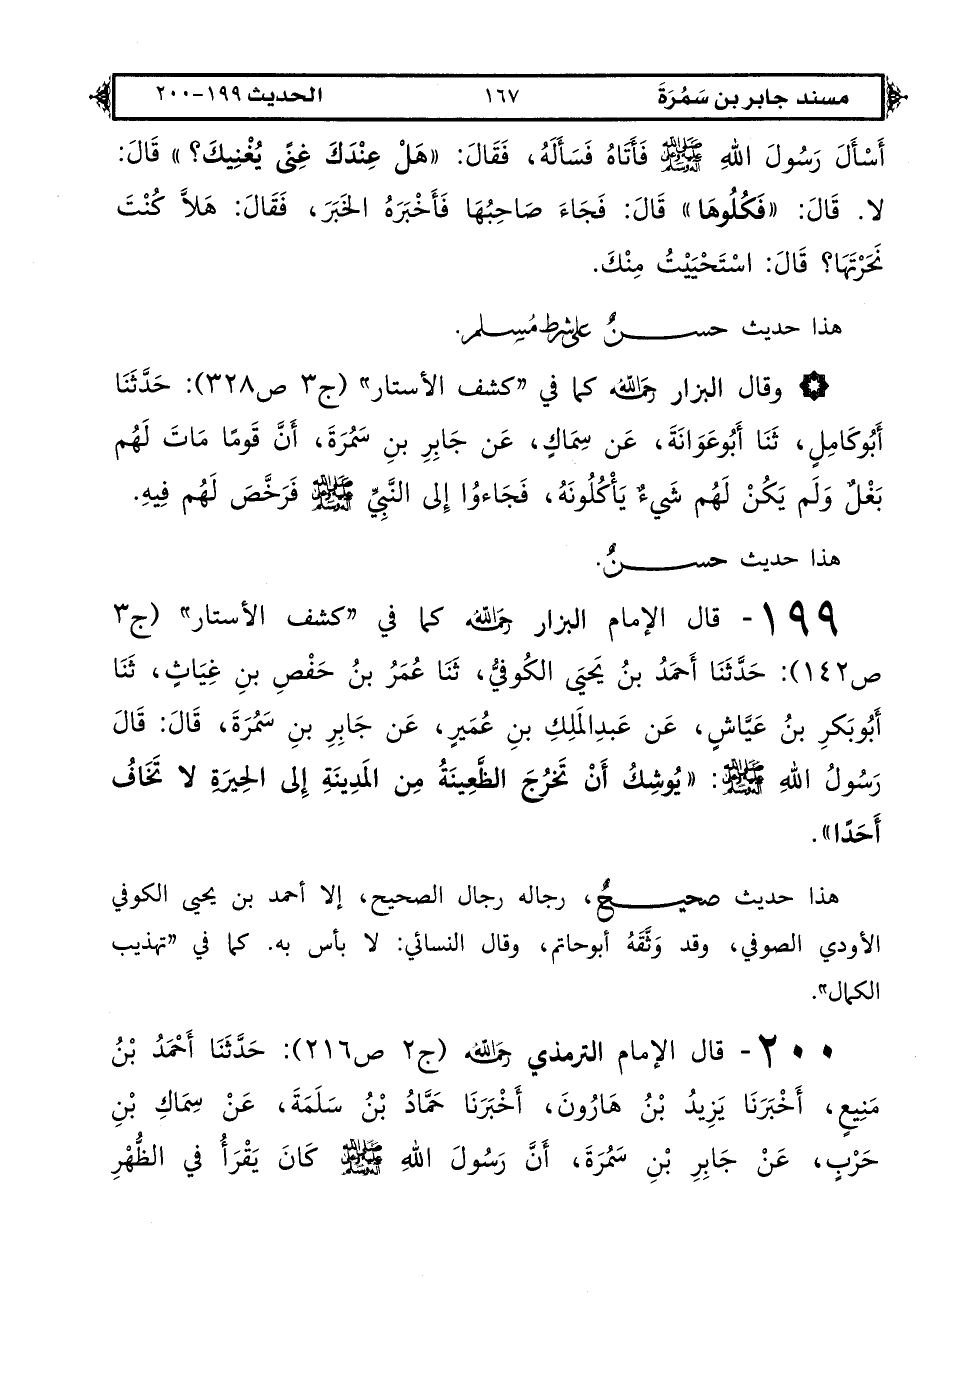 مسند جابر بن سَمُرَةَ ١٦٧ الحديث ١٩٩-٢٠٠
أَسْأَلَ رَسُولَ اللهِ ﷺ فَأَتَاهُ فَسَأَلَهُ، فَقَالَ: «هَلْ عِنْدَكَ غِنًى يُغْنِيكَ؟» قَالَ:
لا. قَالَ: «فَكُلُوهَا» قَالَ: فَجَاءَ صَاحِبُهَا فَأَخْبَرَهُ الخَبَرَ، فَقَالَ: هَلاَّ كُنْتَ
نَحَرْتَهَا؟ قَالَ: اسْتَحْيَيْتُ مِنْكَ.
هذا حديث حســـنٌ على شرط مُسلم.
۞ وقال البزار رحمه الله كما في "كشف الأستار" (ج٣ ص٣٢٨): حَدَّثَنَا
أَبُوكَامِلٍ، ثَنَا أَبُوعَوَانَةَ، عَن سِمَاكٍ، عَن جَابِرِ بنِ سَمُرَةَ، أَنَّ قَومًا مَاتَ لَهُم
بَغْلٌ وَلَم يَكُنْ لَهُم شَيءٌ يَأْكُلُونَهُ، فَجَاءوُا إلى النَّبِيِّ ﷺ فَرَخَّصَ لَهُم فِيهِ.
هذا حديث حســـنٌ.
١٩٩- قال الإمام البزار رحمه الله كما في "كشف الأستار" (ج٣
ص١٤٢): حَدَّثَنَا أَحمَدُ بنُ يَحيَى الكُوفيُّ، ثَنَا عُمَرُ بنُ حَفْصِ بنِ غِيَاثٍ، ثَنَا
أَبُوبَكرِ بنُ عَيَّاشٍ، عَن عَبدِالمَلِكِ بنِ عُمَيرٍ، عَن جَابِرِ بنِ سَمُرَةَ، قَالَ: قَالَ
رَسُولُ اللهِ ﷺ: «يُوشِكُ أَنْ تَخرُجَ الظَّعِينَةُ مِن المَدِينَةِ إلى الحِيرَةِ لا تَخَافُ
أَحَدًا».
هذا حديث صحيـــحٌ، رجاله رجال الصحيح، إلا أحمد بن يحيى الكوفي
الأودي الصوفي، وقد وَثَّقَهُ أبوحاتم، وقال النسائي: لا بأس به. كما في "تهذيب
الكمال".
٢٠٠- قال الإمام الترمذي رحمه الله (ج٢ ص٢١٦): حَدَّثَنَا أَحْمَدُ بْنُ
مَنِيعٍ، أَخْبَرَنَا يَزِيدُ بْنُ هَارُونَ، أَخْبَرَنَا حَمَّادُ بْنُ سَلَمَةَ، عَنْ سِمَاكِ بْنِ
حَرْبٍ، عَنْ جَابِرِ بْنِ سَمُرَةَ، أَنَّ رَسُولَ اللهِ ﷺ كَانَ يَقْرَأُ في الظُّهْرِ